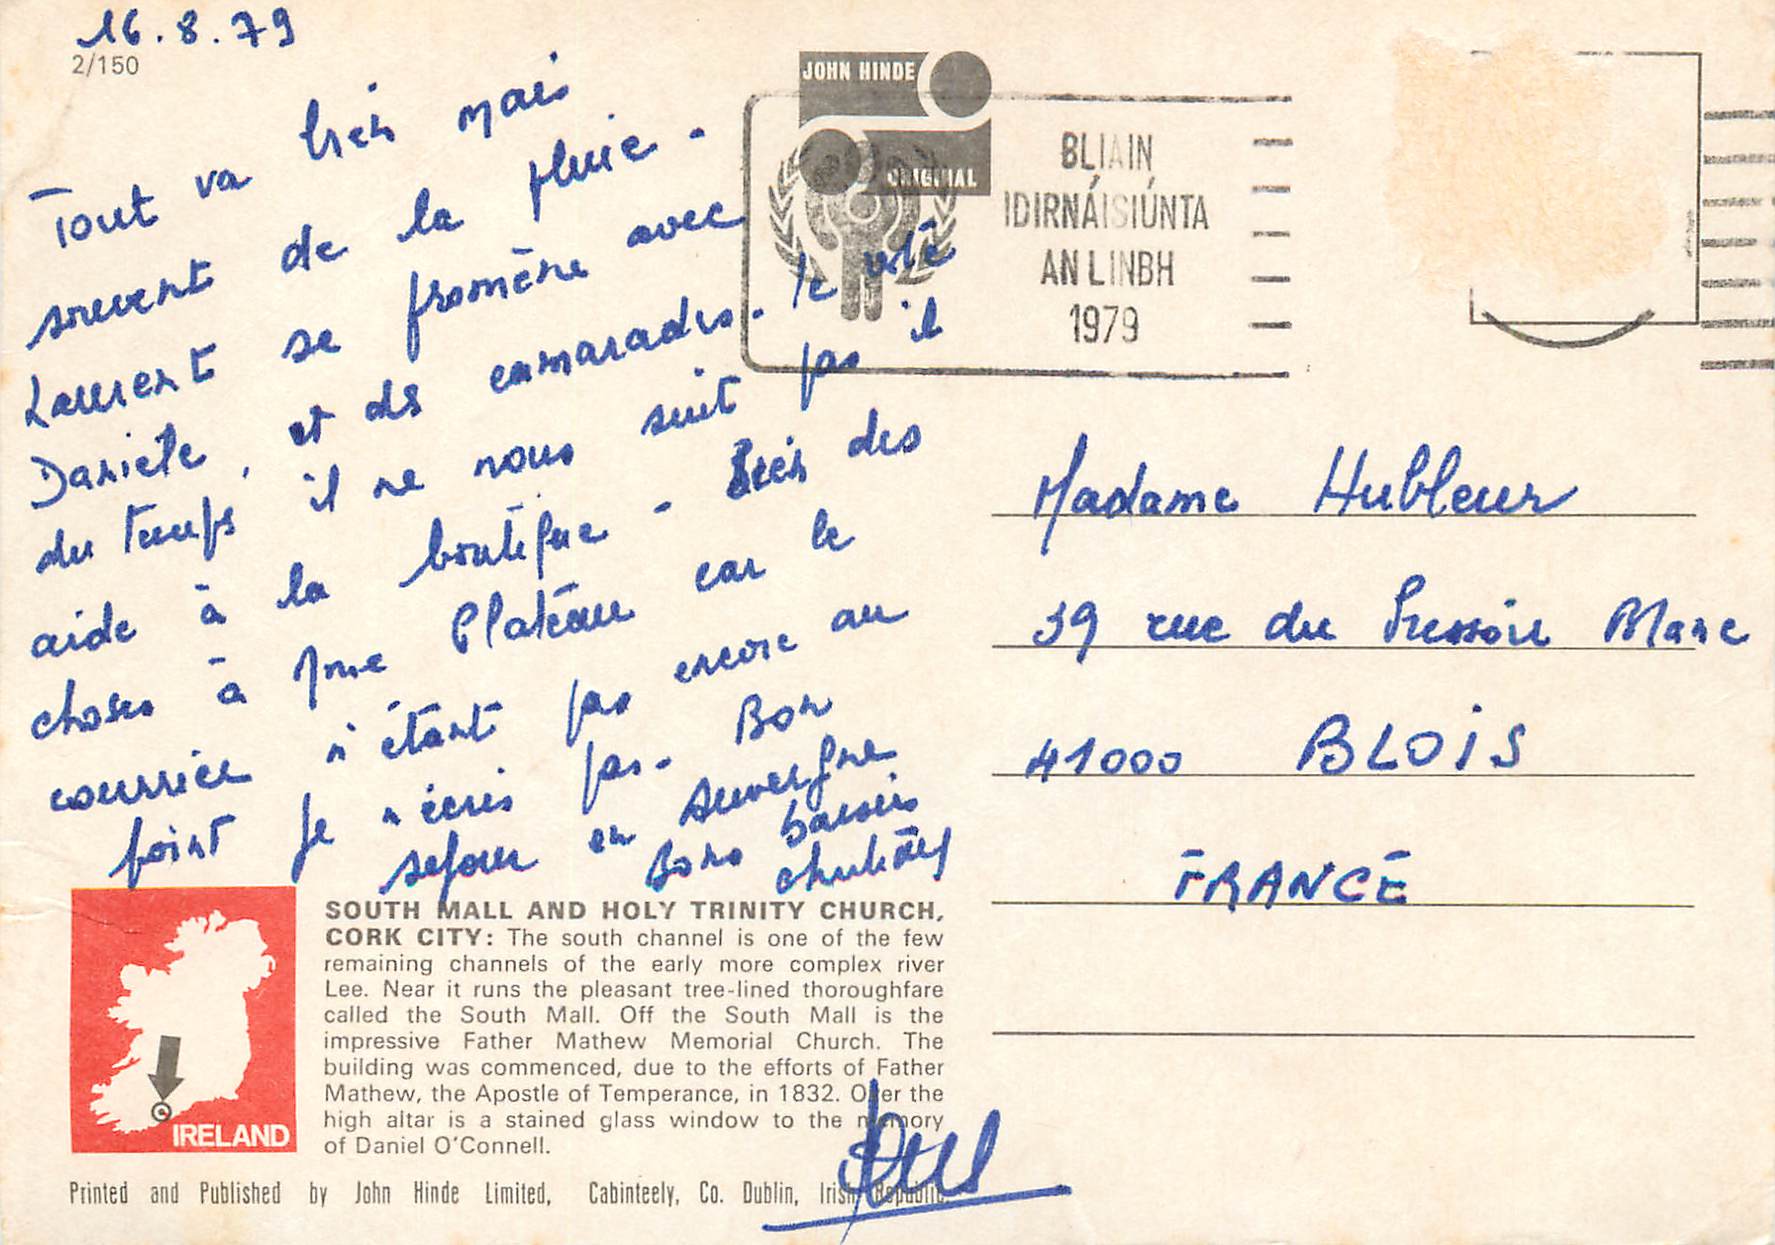 16.8.79
2/150
Tout va bien mais
souvent de la pluie -
Laurent se promène avec
Danièle, et des camarades - le reste
du temps il ne nous suit pas il
aide à la boutique - Bien des
choses à Mme Plateau car le
courrier n'étant pas encore au
point je n'écris pas - Bon
séjour en Auvergne
Bons baisers
JOHN HINDE
ORIGINAL
BLIAIN
IDIRNÁISIÚNTA
AN LINBH
1979
Madame Hubleur
39 rue du Pressoir Blanc
41000 BLOIS
FRANCE
IRELAND
SOUTH MALL AND HOLY TRINITY CHURCH,
CORK CITY: The south channel is one of the few
remaining channels of the early more complex river
Lee. Near it runs the pleasant tree-lined thoroughfare
called the South Mall. Off the South Mall is the
impressive Father Mathew Memorial Church. The
building was commenced, due to the efforts of Father
Mathew, the Apostle of Temperance, in 1832. Over the
high altar is a stained glass window to the memory
of Daniel O'Connell.
Printed and Published by John Hinde Limited, Cabinteely, Co. Dublin, Irish Republic.